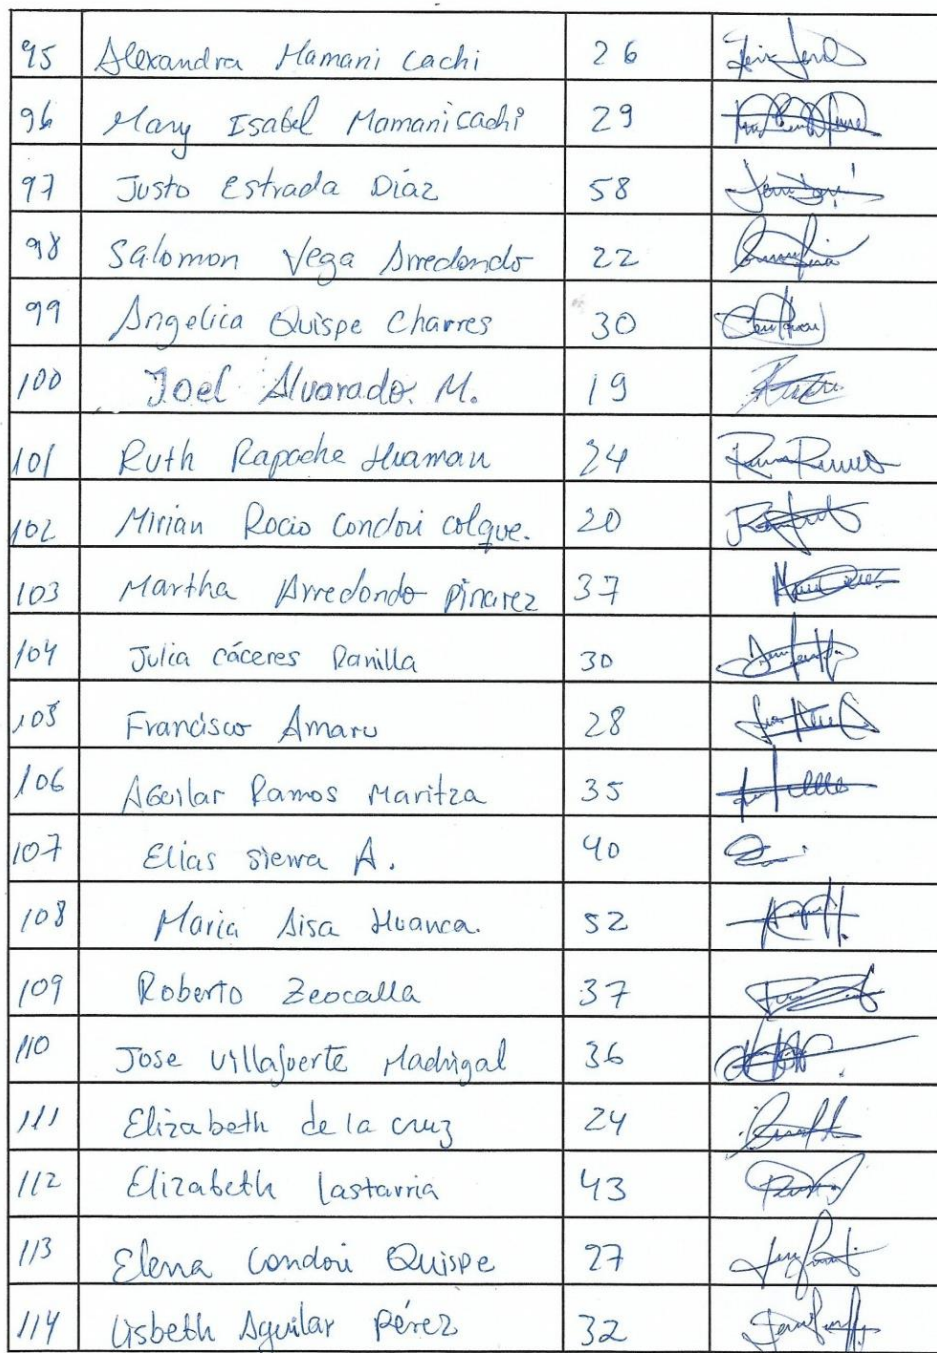 95 Alexandra Mamani Cachi 26
96 Mary Isabel Mamani cachi 29
97 Justo Estrada Díaz 58
98 Salomon Vega Arredondo 22
99 Angelica Quispe Charres 30
100 Joel Alvarado. M. 19
101 Ruth Rapache Huaman 24
102 Mirian Rocio Condori colque. 20
103 Martha Arredondo Pinarez 37
104 Julia cáceres Ranilla 30
105 Francisco Amaru 28
106 Aguilar Ramos Maritza 35
107 Elias sierra A. 40
108 Maria Aisa Huanca. 52
109 Roberto Zeocalla 37
110 Jose villafuerte Madrigal 36
111 Elizabeth de la cruz 24
112 Elizabeth Lastarria 43
113 Elena Condori Quispe 27
114 Lisbeth Aguilar Pérez 32